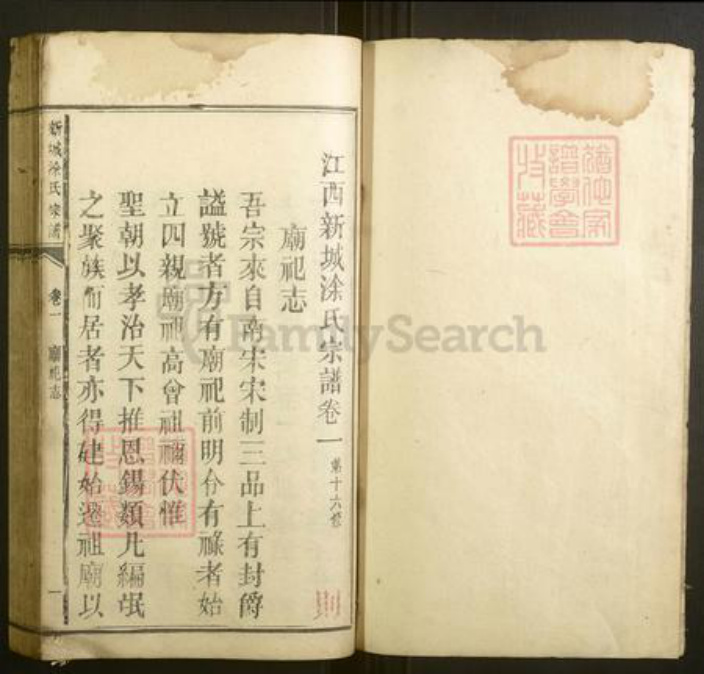 江西新城涂氏宗譜卷一 第十六修
廟祀志
吾宗來自南宋宋制三品上有封爵
謚號者方有廟祀前明分有祿者始
立四親廟祀高曾祖禰伏惟
聖朝以孝治天下推恩錫類凡編氓
之聚族而居者亦得建始遷祖廟以
新城涂氏宗譜 卷一 廟祀志 一
FamilySearch